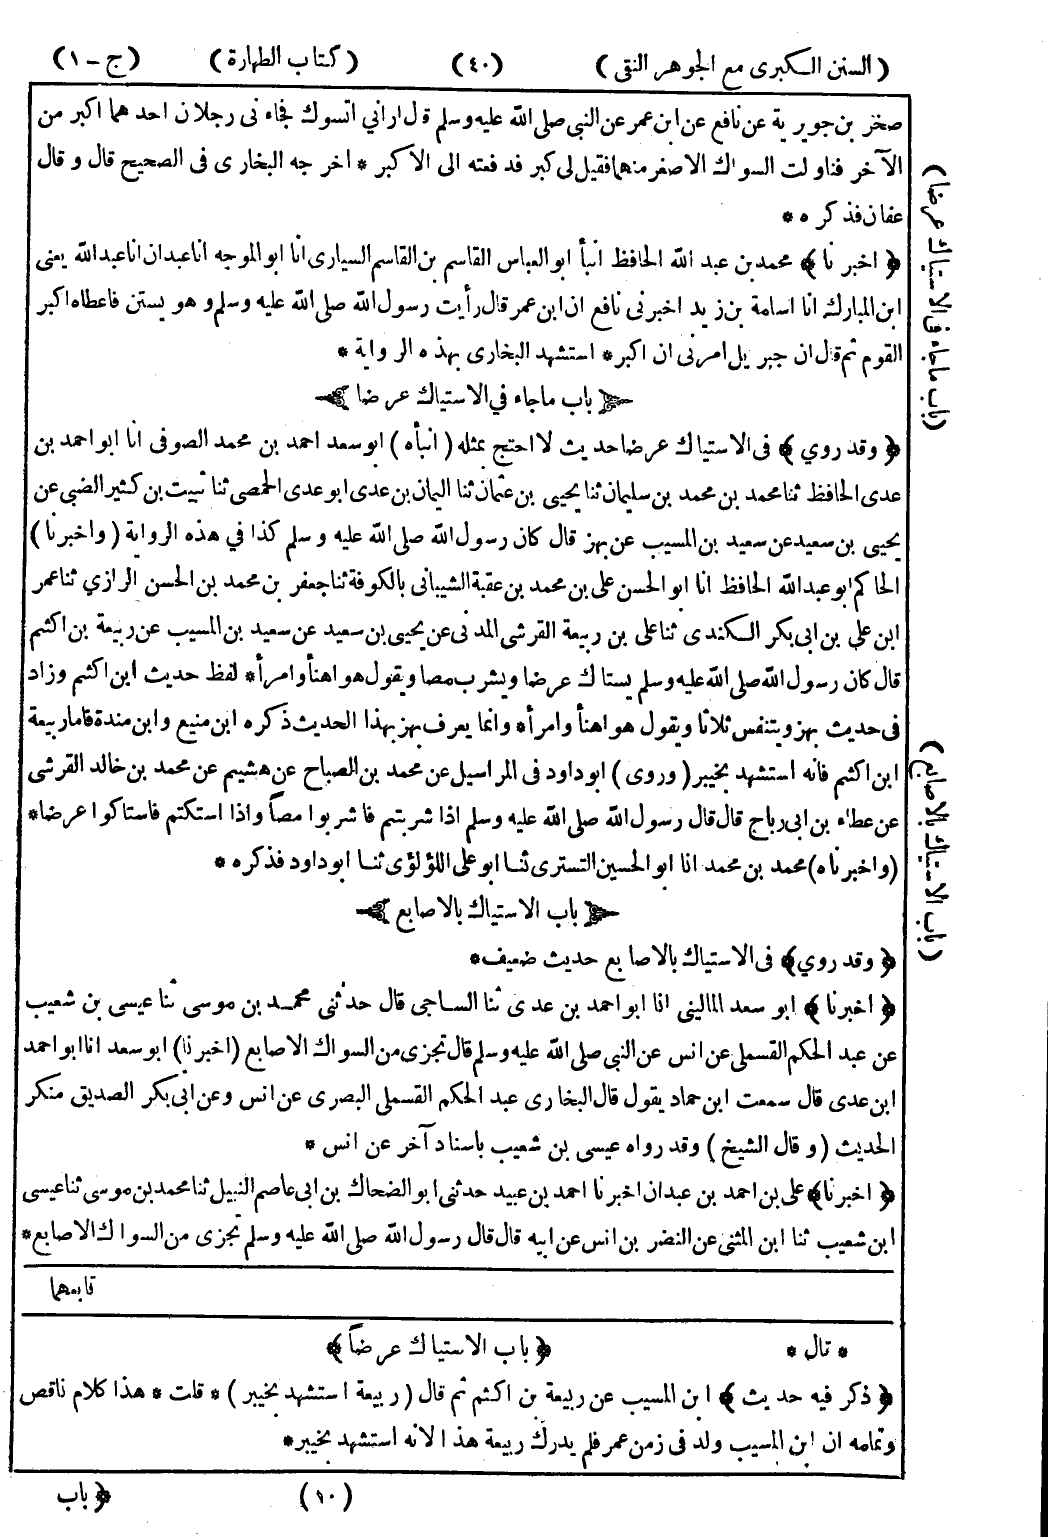 (السنن الكبرى مع الجوهر النقى) (٤٠) (كتاب الطهارة) (ج - ١)
صخر بن جويرية عن نافع عن ابن عمر عن النبى صلى الله عليه وسلم قال اراني اتسوك فجاء نى رجلان احد هما اكبر من
الآخر فناولت السواك الاصغر منهما فقيل لى كبر فدفعته الى الاكبر * اخرجه البخارى فى الصحيح قال وقال
عفان فذكره *
﴿ اخبرنا ﴾ محمد بن عبد الله الحافظ انبأ ابو العباس القاسم بن القاسم السيارى انا ابو الموجه انا عبدان انا عبد الله يعنى
ابن المبارك انا اسامة بن زيد اخبرنى نافع ان ابن عمر قال رأيت رسول الله صلى الله عليه وسلم و هو يستن فاعطاه اكبر
القوم ثم قال ان جبريل امرنى ان اكبر * استشهد البخارى بهذه الرواية *
﴿ باب ماجاء في الاستياك عرضا ﴾
﴿ وقد روي ﴾ فى الاستياك عرضا حديث لا احتج بمثله (انبأه) ابو سعد احمد بن محمد الصوفى انا ابو احمد بن
عدى الحافظ ثنا محمد بن محمد بن سليمان ثنا يحيى بن عثمان ثنا اليمان بن عدى ابو عدى الحمصى ثنا ثبيت بن كثير الضبي عن
يحيى بن سعيد عن سعيد بن المسيب عن بهز قال كان رسول الله صلى الله عليه وسلم كذا في هذه الرواية (واخبرنا)
الحاكم ابو عبد الله الحافظ انا ابو الحسن على بن محمد بن عقبة الشيبانى بالكوفة ثنا جعفر بن محمد بن الحسن الرازي ثنا عمر
ابن على بن ابى بكر الكندى ثنا على بن ربيعة القرشى المدنى عن يحيى بن سعيد عن سعيد بن المسيب عن ربيعة بن اكثم
قال كان رسول الله صلى الله عليه وسلم يستاك عرضا ويشرب مصا ويقول هو اهنأ وامرأ * لفظ حديث ابن اكثم وزاد
فى حديث بهز ويتنفس ثلاثا ويقول هو اهنأ وامرأ * وانما يعرف بهز بهذا الحديث ذكره ابن منيع وابن مندة فاما ربيعة
ابن اكثم فانه استشهد بخيبر (وروى) ابو داود فى المراسيل عن محمد بن الصباح عن هشيم عن محمد بن خالد القرشى
عن عطاء بن ابى رباح قال قال رسول الله صلى الله عليه وسلم اذا شربتم فاشربوا مصاً واذا استكتم فاستاكوا عرضا *
(واخبرناه) محمد بن محمد انا ابو الحسين التسترى ثنا ابو على اللؤلؤى ثنا ابو داود فذكره *
﴿ باب الاستياك بالاصابع ﴾
﴿ وقد روي ﴾ فى الاستياك بالاصابع حديث ضعيف *
﴿ اخبرنا ﴾ ابو سعد المالينى انا ابو احمد بن عدى ثنا الساجى قال حدثنى محمد بن موسى ثنا عيسى بن شعيب
عن عبد الحكم القسملى عن انس عن النبى صلى الله عليه وسلم قال تجزى من السواك الاصابع (اخبرنا) ابو سعد انا ابو احمد
ابن عدى قال سمعت ابن حماد يقول قال البخارى عبد الحكم القسملى البصرى عن انس وعن ابى بكر الصديق منكر
الحديث (و قال الشيخ) وقد رواه عيسى بن شعيب باسناد آخر عن انس *
﴿ اخبرنا ﴾ على بن احمد بن عبدان اخبرنا احمد بن عبيد حدثنى ابو الضحاك بن ابى عاصم النبيل ثنا محمد بن موسى ثنا عيسى
ابن شعيب ثنا ابن المثنى عن النضر بن انس عن ابيه قال قال رسول الله صلى الله عليه وسلم تجزى من السواك الاصابع *
تابعهما
* قال * ﴿ باب الاستياك عرضاً ﴾
﴿ ذكر فيه حديث ﴾ ابن المسيب عن ربيعة بن اكثم ثم قال (ربيعة استشهد بخيبر) * قلت * هذا كلام ناقص
وتمامه ان ابن المسيب ولد فى زمن عمر فلم يدرك ربيعة هذا لانه استشهد بخيبر *
(١٠) ﴿ باب
(باب ماجاء فى الاستياك عرضا)
(باب الاستياك بالاصابع)